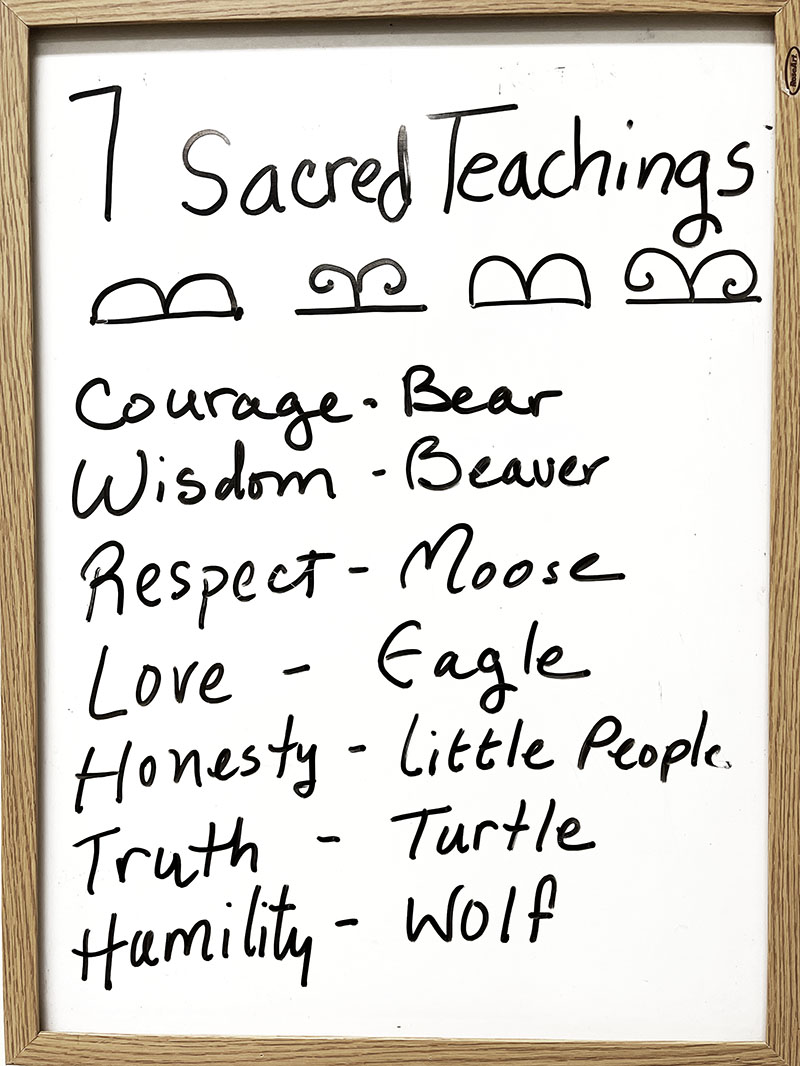 RoseArt
7 Sacred Teachings
Courage - Bear
Wisdom - Beaver
Respect - Moose
Love - Eagle
Honesty - Little People
Truth - Turtle
Humility - Wolf